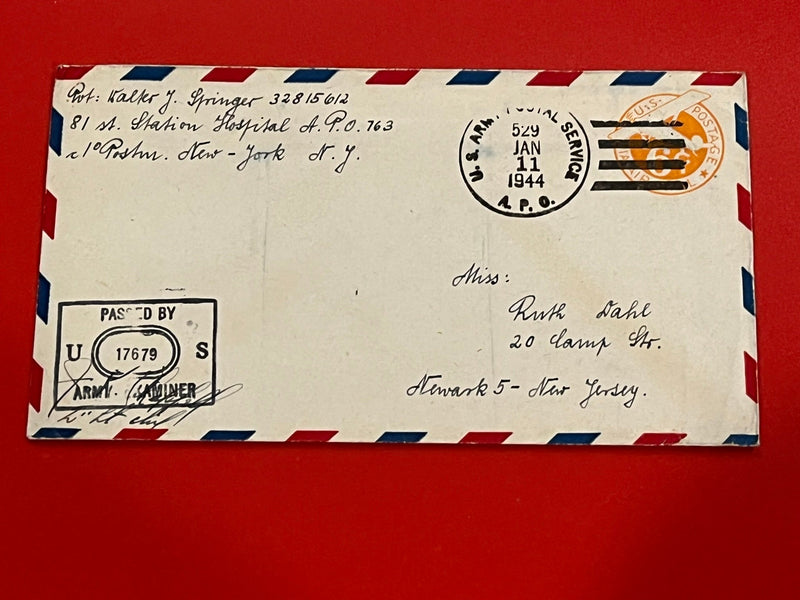 Pvt: Walter J. Springer 32815612
81 st. Station Hospital A.P.O. 763
c/o Postm. New-York N.Y.
U.S. ARMY POSTAL SERVICE
529
JAN
11
1944
A.P.O.
U.S. POSTAGE
6¢
Miss:
Ruth Dahl
20 Camp Str.
Newark 5 - New Jersey.
PASSED BY
U 17679 S
ARMY EXAMINER